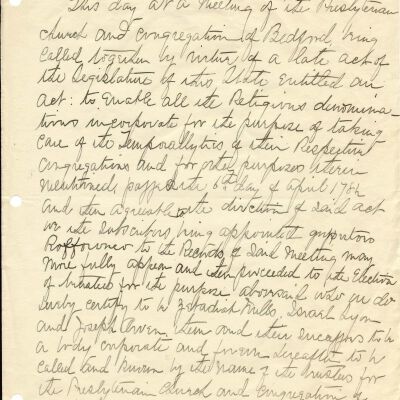 This day at a meeting of the Presbyterian
church and congregation of Bedford being
called together by virtue of a late act of
the Legislature of this State entitled an
act: to enable all the Religious denomina-
tions incorporate for the purpose of taking
care of the Temporallytics of their Respective
Congregations and for other purposes therein
Mentioned passed the 6th day of April 1784
and then agreeable to the direction of said act
we the subscribers being appointed
to the Records of said Meeting may
More fully appear and then proceeded to the Election
of trustees for the purpose aforesaid who we do
hereby certify to be Zebadiah Mills, Israel Lyon
and Joseph Owen, them and their Successors to be
a body corporate and forever hereafter to be
called and known by the name of the trustees for
the Presbyterian Church and Congregation of